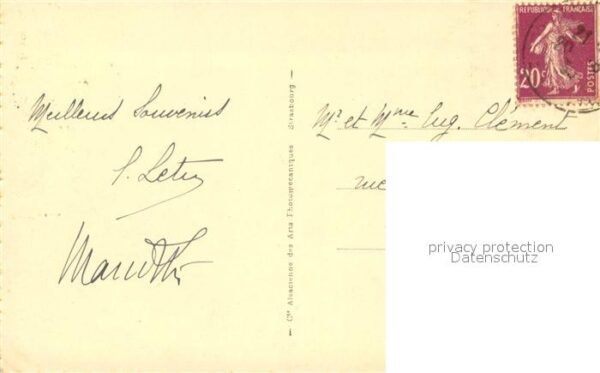 Meilleurs Souvenirs
Mr et Mme Eug. Clément
rue
Cie Alsacienne des Arts Photomécaniques — Strasbourg —
REPUBLIQUE FRANÇAISE
20c
POSTES
privacy protection
Datenschutz